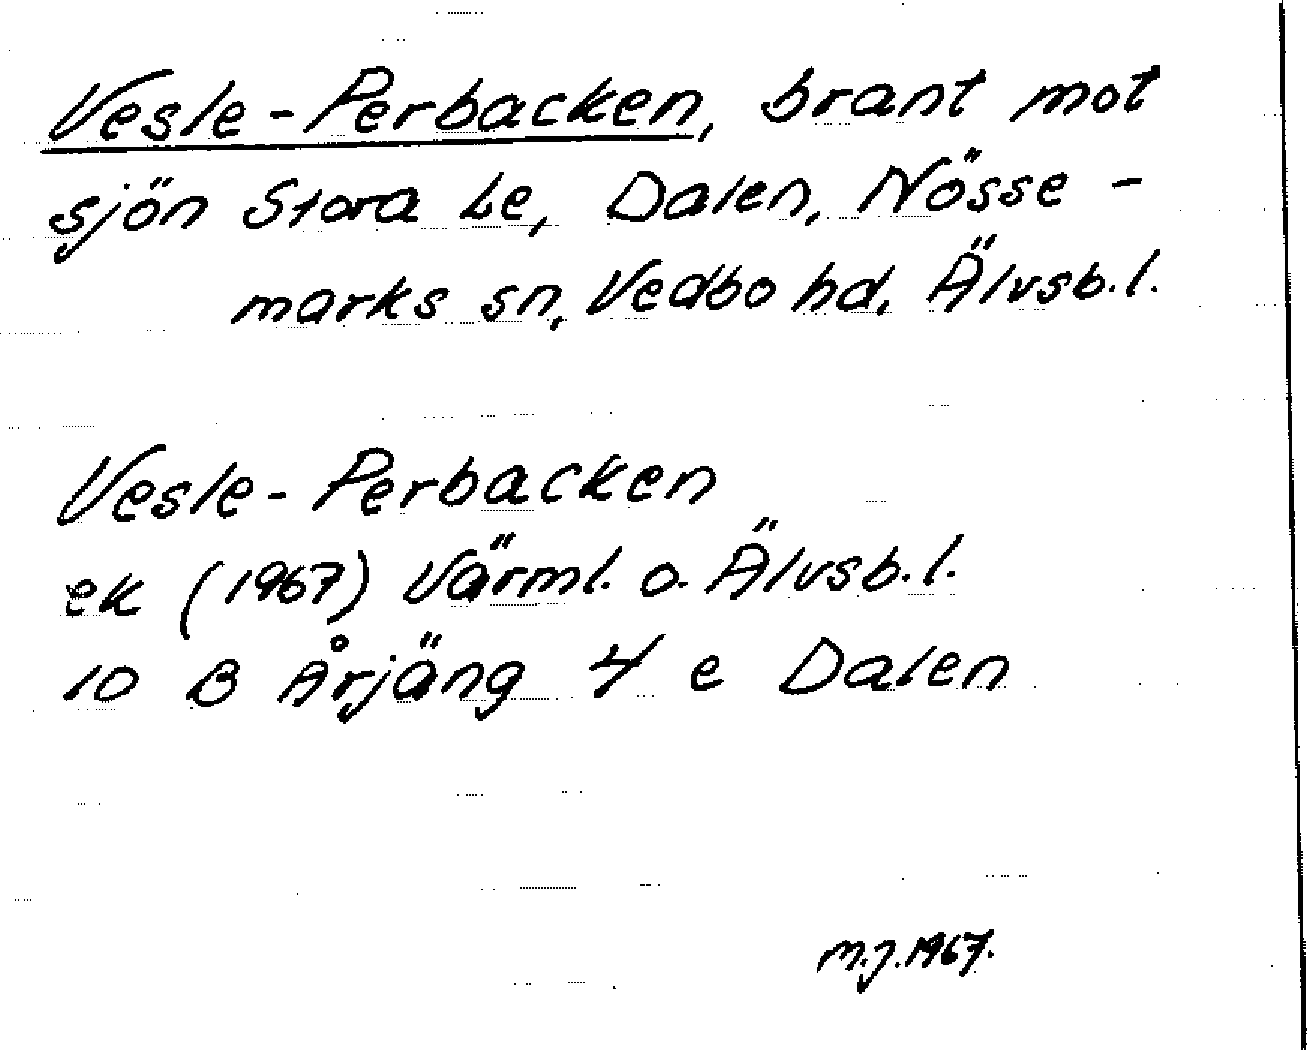 Vesle-Perbacken, brant mot
sjön Stora Le, Dalen, Nösse-
marks sn, Vedbo hd, Älvsb.l.
Vesle-Perbacken
ek (1967) Värml. o. Älvsb.l.
10 B Årjäng 4 e Dalen
m.j.1967.